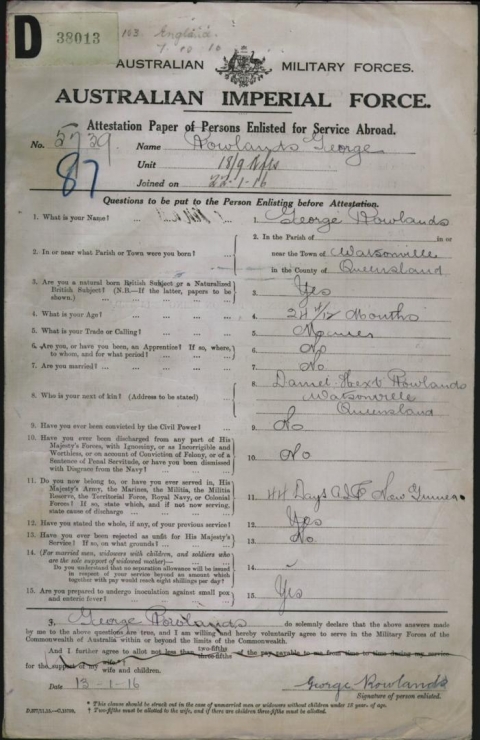 D 38013 103 England
7.10.16
AUSTRALIAN MILITARY FORCES.
AUSTRALIAN IMPERIAL FORCE.
Attestation Paper of Persons Enlisted for Service Abroad.
No. 5739 Name Rowlands George
87 Unit 18/9 Bn
Joined on 22-1-16
Questions to be put to the Person Enlisting before Attestation.
1. What is your Name? ... ... 1. George Rowlands
2. In or near what Parish or Town were you born? 2. In the Parish of in or
near the Town of Watsonville
in the County of Queensland
3. Are you a natural born British Subject or a Naturalized
British Subject? (N.B.—If the latter, papers to be
shown.) ... ... 3. Yes
4. What is your Age? ... ... 4. 24 4/12 Months
5. What is your Trade or Calling? ... ... 5. Miner
6. Are you, or have you been, an Apprentice? If so, where,
to whom, and for what period? ... ... 6. No
7. Are you married? ... ... 7. No
8. Who is your next of kin? (Address to be stated) ... 8. Daniel Hext Rowlands
Watsonville
Queensland
9. Have you ever been convicted by the Civil Power? ... 9. No
10. Have you ever been discharged from any part of His
Majesty's Forces, with Ignominy, or as Incorrigible and
Worthless, or on account of Conviction of Felony, or of a
Sentence of Penal Servitude, or have you been dismissed
with Disgrace from the Navy? ... 10. No
11. Do you now belong to, or have you ever served in, His
Majesty's Army, the Marines, the Militia, the Militia
Reserve, the Territorial Force, Royal Navy, or Colonial
Forces? If so, state which, and if not now serving,
state cause of discharge ... ... 11. 44 Days New Guinea
12. Have you stated the whole, if any, of your previous service? 12. Yes
13. Have you ever been rejected as unfit for His Majesty's
Service? If so, on what grounds? ... ... 13. No
14. (For married men, widowers with children, and soldiers who
are the sole support of widowed mother)—
Do you understand that no separation allowance will be issued
in respect of your service beyond an amount which
together with pay would reach eight shillings per day? 14. -
15. Are you prepared to undergo inoculation against small pox
and enteric fever? ... ... 15. Yes
I, George Rowlands do solemnly declare that the above answers made
by me to the above questions are true, and I am willing and hereby voluntarily agree to serve in the Military Forces of the
Commonwealth of Australia within or beyond the limits of the Commonwealth.
And I further agree to allot not less than two-fifths three-fifths of the pay payable to me from time to time during my service
for the support of my wife
wife and children.
Date 13-1-16 George Rowlands
Signature of person enlisted.
* This clause should be struck out in the case of unmarried men or widowers without children under 18 year of age.
† Two-fifths must be allotted to the wife, and if there are children three-fifths must be allotted.